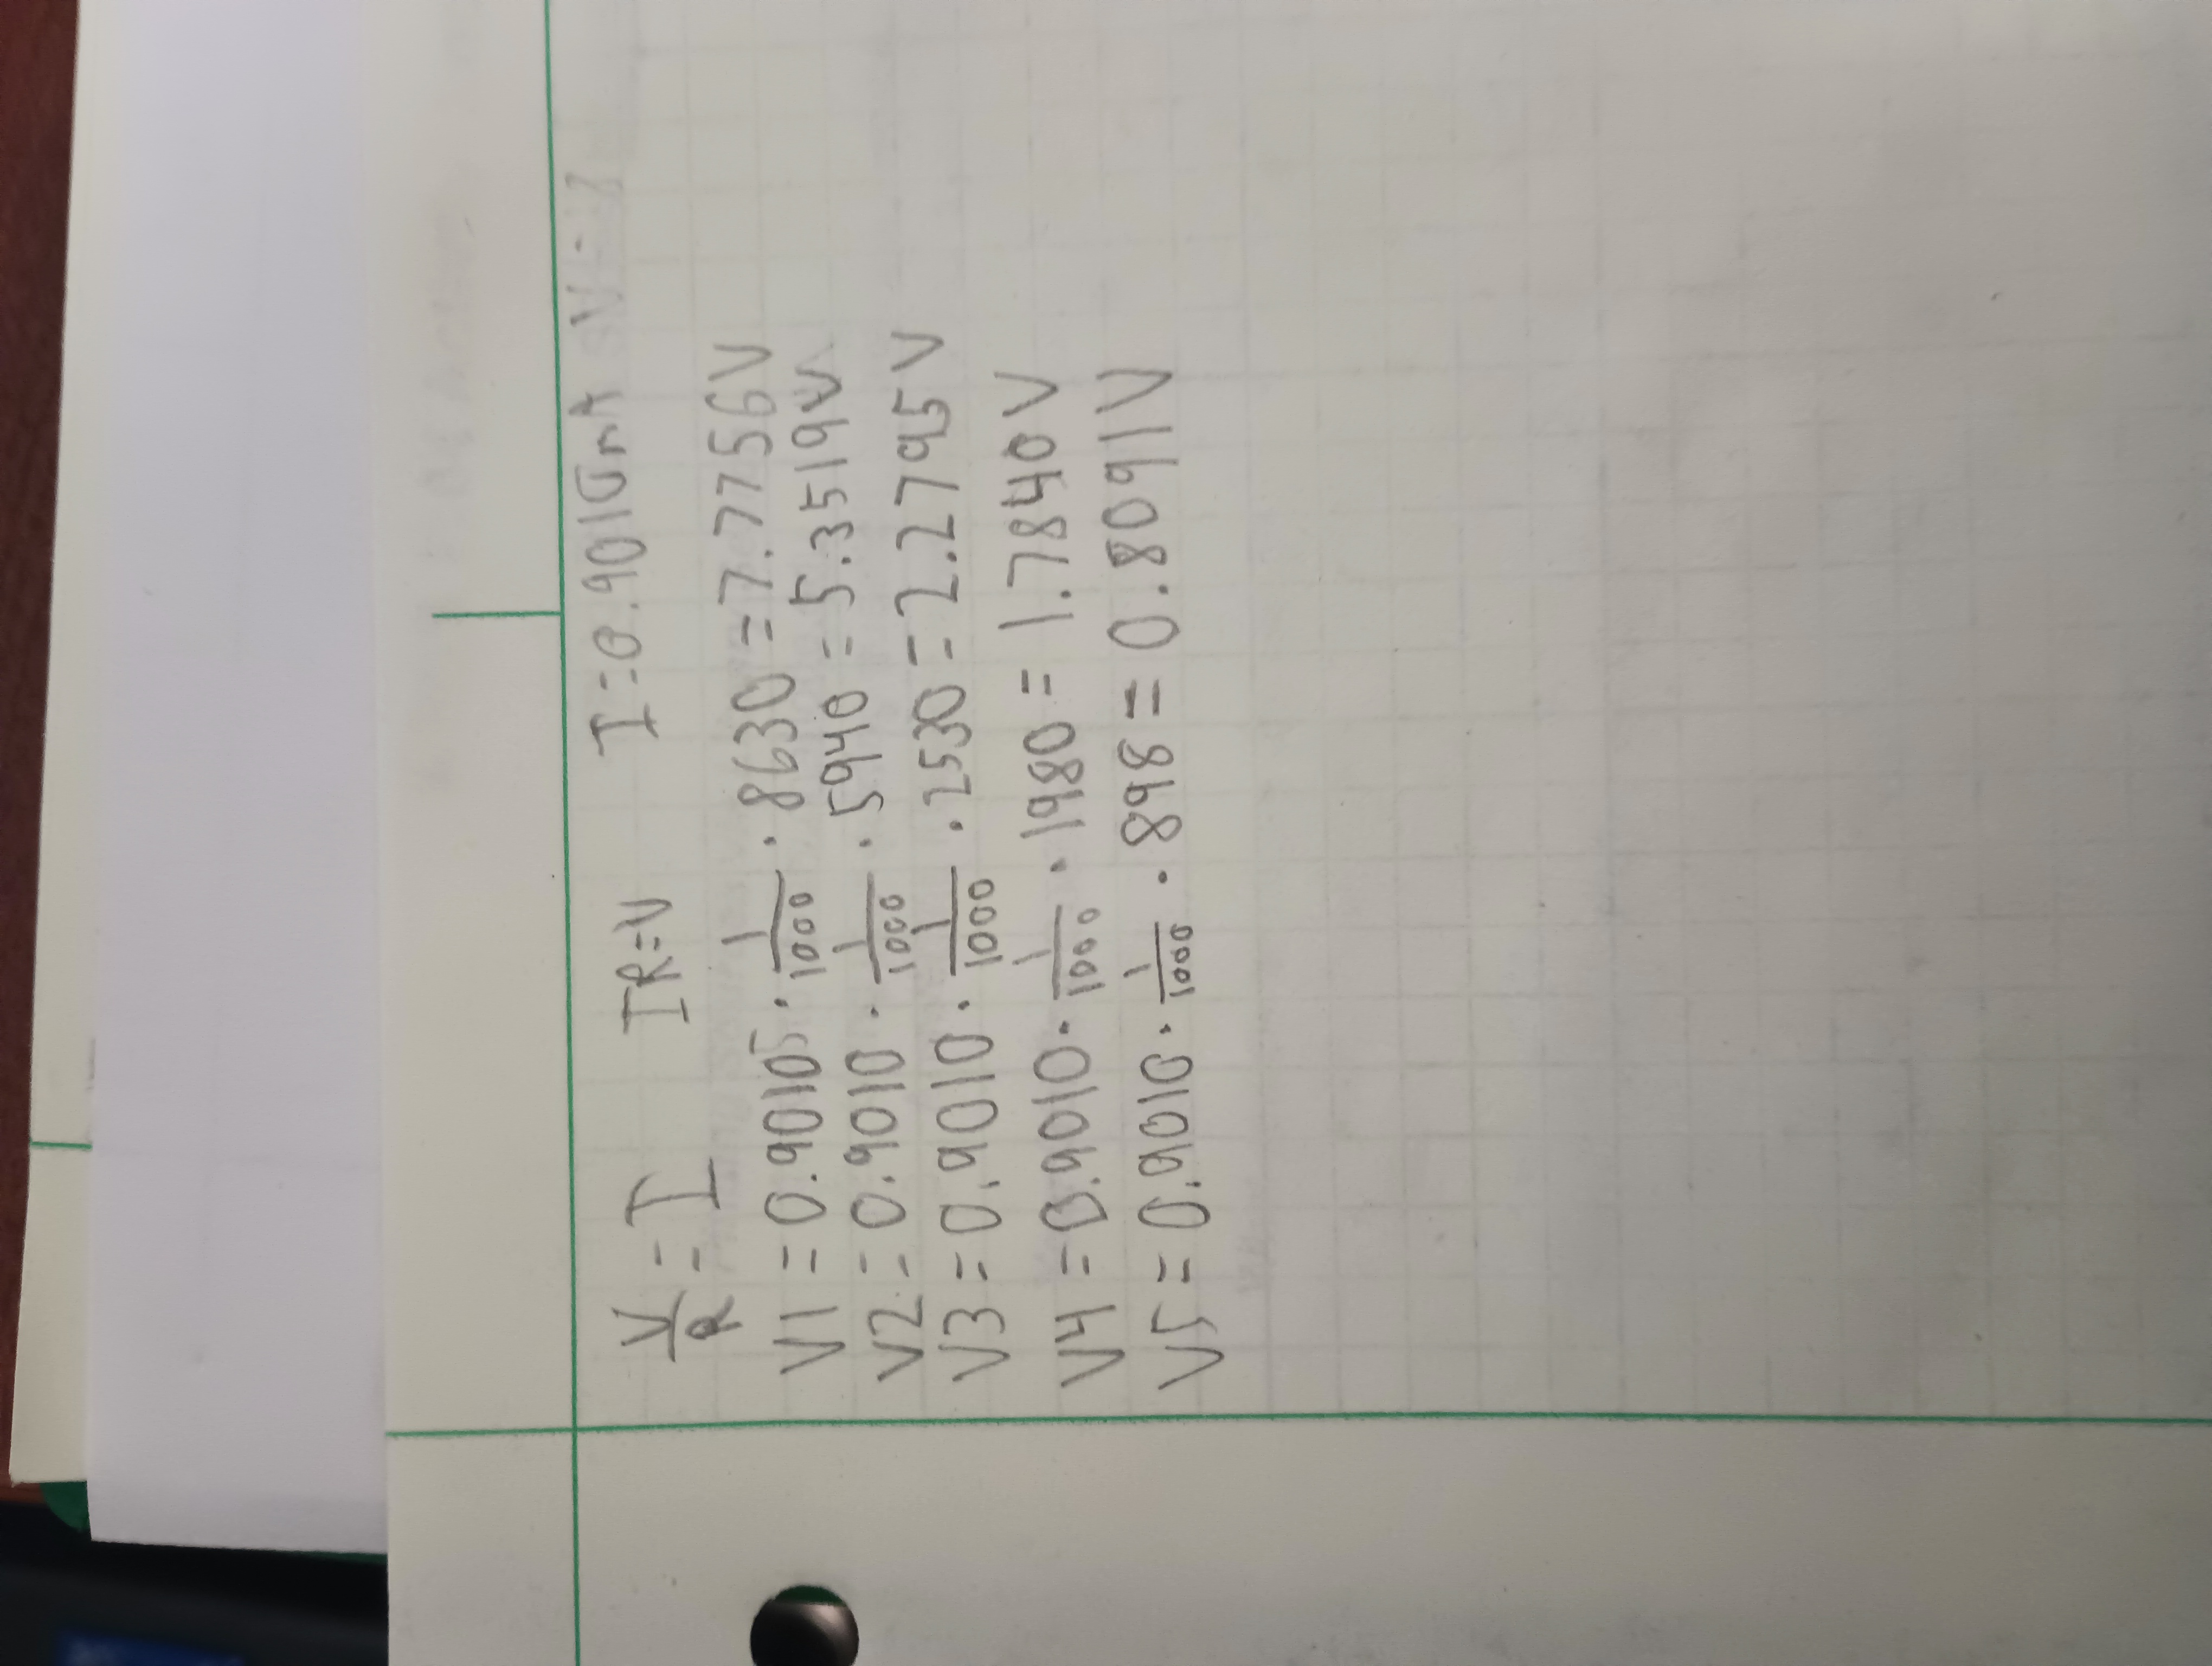 V/R = I IR=V I=0.9010mA
V1 = 0.90105 · 1/1000 · 8630 = 7.7756V
V2 = 0.9010 · 1/1000 · 5940 = 5.3519V
V3 = 0.9010 · 1/1000 · 2530 = 2.2795V
V4 = 0.9010 · 1/1000 · 1980 = 1.7840V
V5 = 0.9010 · 1/1000 · 898 = 0.8091V